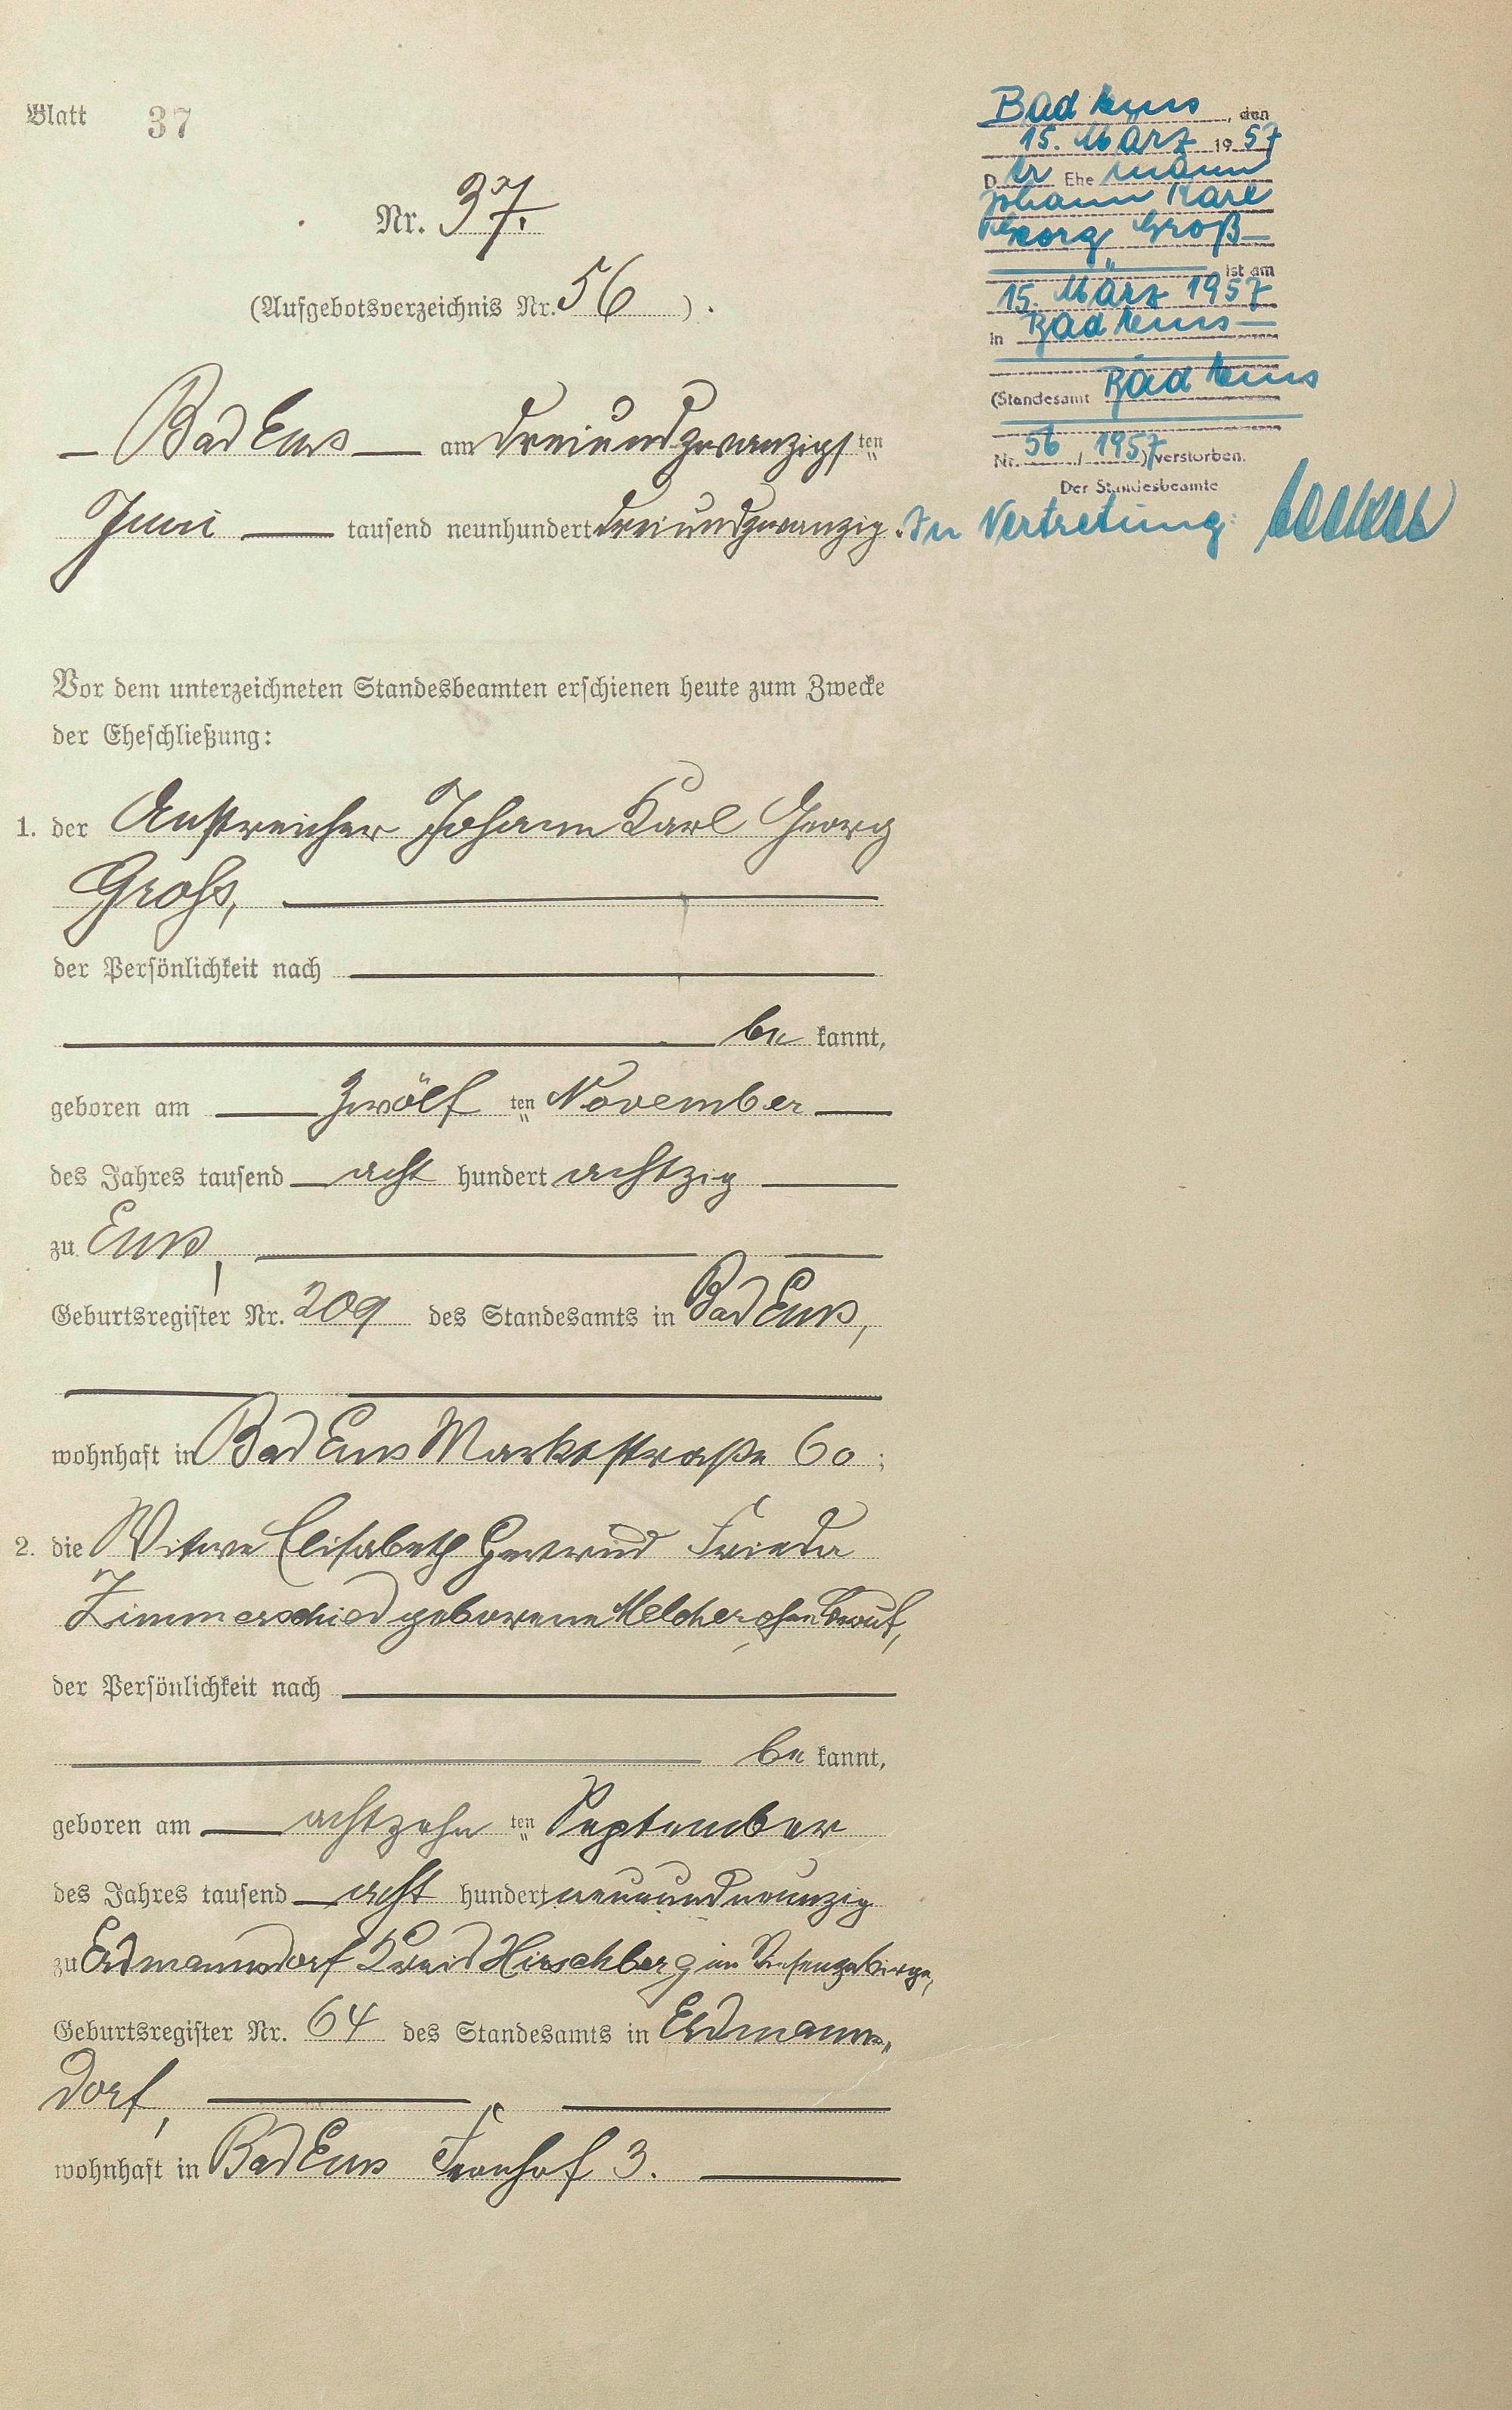 Blatt 37
Nr. 37.
(Aufgebotsverzeichnis Nr. 56).
Bad Ems am dreiundzwanzigsten
Juni tausend neunhundert dreiundzwanzig.
Vor dem unterzeichneten Standesbeamten erschienen heute zum Zwecke
der Eheschließung:
1. der Anstreicher Johann Karl Georg
Groß,
der Persönlichkeit nach
be kannt,
geboren am zwölf ten November
des Jahres tausend acht hundert achtzig
zu Ems,
Geburtsregister Nr. 209 des Standesamts in Bad Ems,
wohnhaft in Bad Ems Marktstraße 60;
2. die Witwe Elisabeth Gertrud Frieda
Zimmerschied geborene
der Persönlichkeit nach
be kannt,
geboren am achtzehn ten September
des Jahres tausend acht hundert neunundneunzig
zu Erdmannsdorf Kreis Hirschberg im Riesengebirge,
Geburtsregister Nr. 64 des Standesamts in Erdmanns„
dorf,
wohnhaft in Bad Ems 3.
Bad Ems, den
15. März 1957
Der Ehemann
Johann Karl
Georg Groß
ist am
15. März 1957
in Bad Ems
(Standesamt Bad Ems
Nr. 56 / 1957) verstorben.
Der Standesbeamte
In Vertretung: